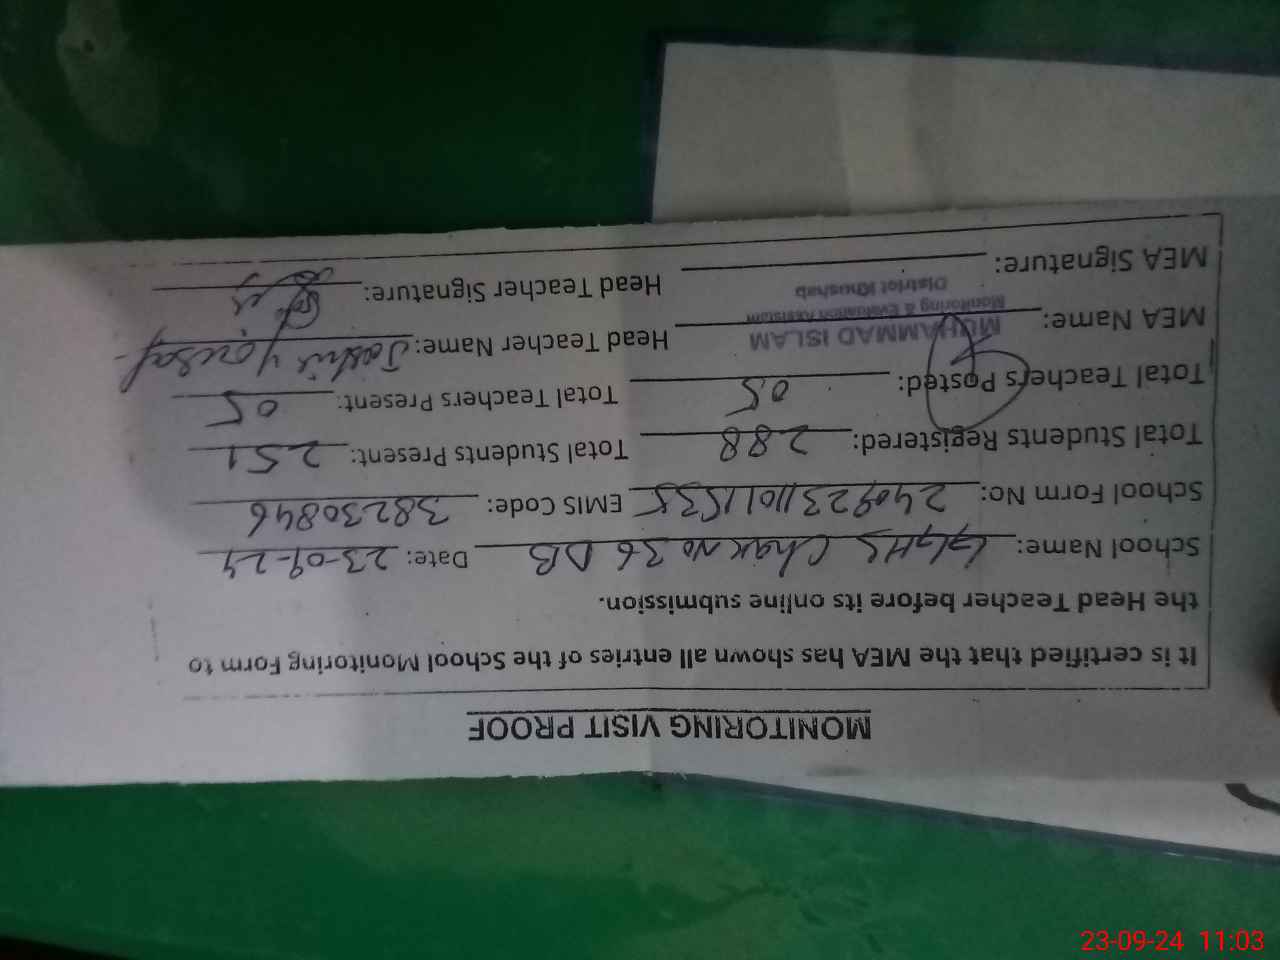 MONITORING VISIT PROOF
It is certified that the MEA has shown all entries of the School Monitoring Form to
the Head Teacher before its online submission.
School Name: GGHS Chak No 36 DB Date: 23-09-24
School Form No: EMIS Code: 38230846
Total Students Registered: 288 Total Students Present: 251
Total Teachers Posted: 05 Total Teachers Present: 05
MEA Name: MUHAMMAD ISLAM Head Teacher Name: Yousaf
Monitoring & Evaluation Assistant
District Khushab
MEA Signature: Head Teacher Signature:
23-09-24 11:03